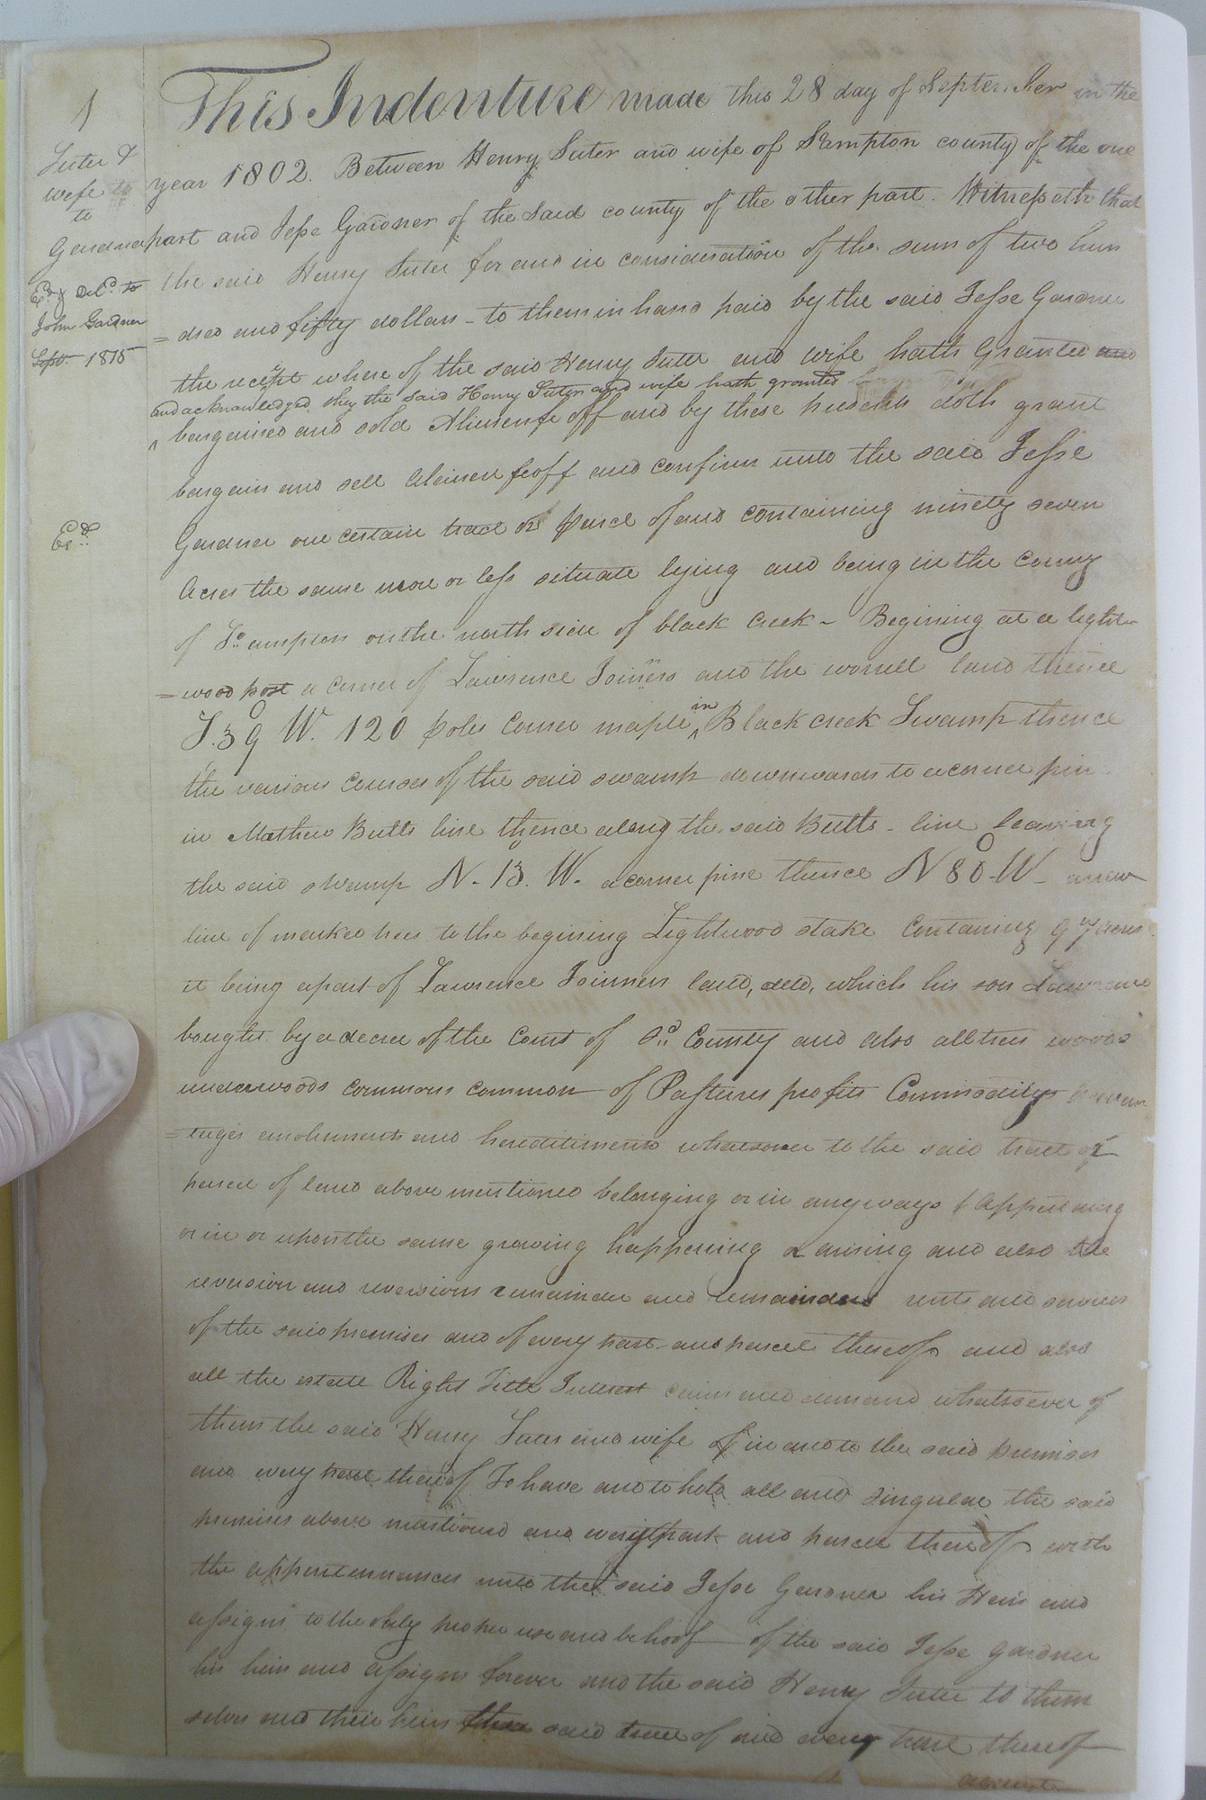 1
Suter &
wife to
to
Gardner
Exd & Deld to
John Gardner
Sept. 1815
Exd
This Indenture made this 28 day of September in the
year 1802. Between Henry Suter and wife of Sºampton county of the one
part and Jesse Gardner of the Said county of the other part. Witnesseth that
the said Henry Suter for and in consideration of the sum of two hun
=dred and fifty dollars - to them in hand paid by the said Jesse Gardner
the receipt where of the said Henry Suter and wife hath Granted and
and acknowledged they the said Henry Suter and wife hath granted
bargained and sold Alienenfe off and by these presents doth grant
bargain and sell alienen feoff and confirm unto the said Jesse
Gardner one certain tract or parcel of and containing ninety seven
Acres the same more or less situate lying and being in the County
of Sºampton on the north side of black Creek - Begining at a light
=wood post a corner of Lawrence Joiners and the worrell land thence
S. 39 W. 120 poles Corner maple in Black creek Swamp thence
the various courses of the said swamp downwards to a corner pine
in Mathew Butts line thence along the said Butts line leaving
the said swamp N. 13. W. a corner pine thence N 80 W - a new
line of marked trees to the begining Lightwood stake Containing 97 acres
it being a part of Lawrence Joinners land, decd, which his son Lawrence
bought by a decree of the Court of Sd County and also all trees woods
underwoods commons common of Pastures profits Commoditys advan
=tages emoluments and hereditiments whatsoever to the said tract or
parcel of land above mentioned belonging or in any ways Appertaining
or in or upon the same growing happening or arising and also the
reversion and reversions remainder and remainders rents and services
of the said premises and of every part and parcel thereof and also
all the estate Right Title Interest claim and demand whatsoever of
them the said Henry Suter and wife of in and to the said premises
and every part thereof To have and to hold all and singular the said
premises above mentioned and every part and parcel thereof with
the appurtennances unto the said Jesse Gardner his Heirs and
assigns to the only proper use and behoof of the said Jesse Gardner
his heirs and assigns forever and the said Henry Suter to them
selves and their heirs the said tract of and every part thereof
against